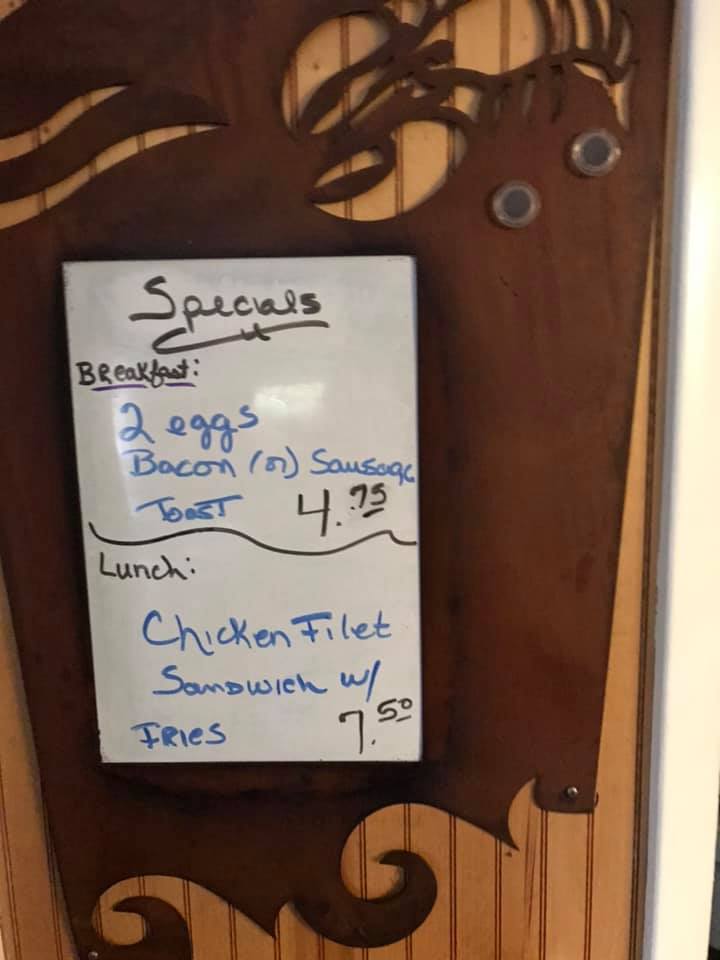 Specials
Breakfast:
2 eggs
Bacon (or) Sausage
Toast 4.75
Lunch:
Chicken Filet
Sandwich w/
Fries 7.50